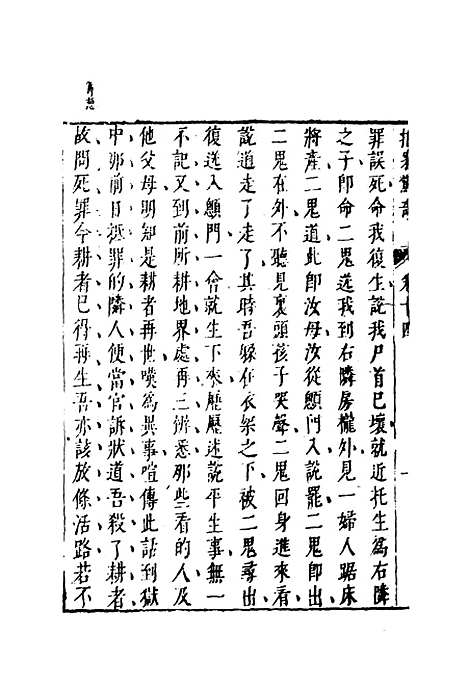 拍案驚奇 卷十四
罪誤死命我復生說我尸首已壞就近托生為右隣
之子即命二鬼送我到右隣房櫳外見一婦人踞床
將產二鬼道此即汝母汝從顖門入說罷二鬼即出
二鬼在外不聽見裏頭孩子哭聲二鬼回身進來看
說道走了走了其時吾躲在衣架之下被二鬼尋出
復送入顖門一會就生下來歷歷述說平生事無一
不記又到前所耕地界處再三辨悉那些看的人及
他父母明知是耕者再世嘆為異事喧傳此話到獄
中那前日抵罪的隣人便當官訴狀道吾殺了耕者
故問死罪今耕者已得再生吾亦該放條活路若不